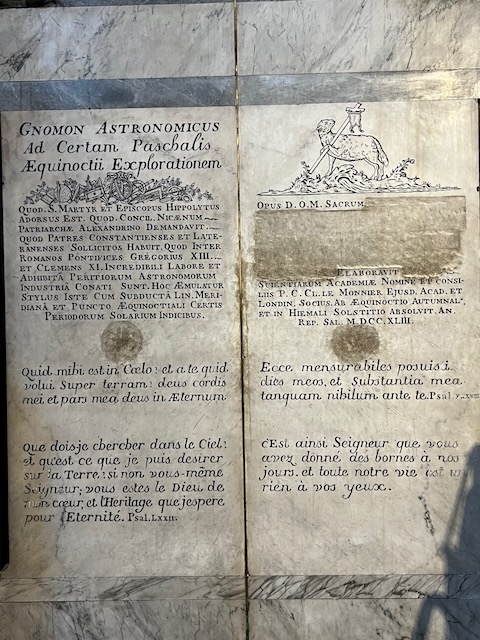 GNOMON ASTRONOMICUS
Ad Certam Paschalis
Æquinoctii Explorationem
QUOD. S. MARTYR ET EPISCOPUS HIPPOLYTUS
ADORSUS EST. QUOD. CONCIL. NICÆNUM
PATRIARCHÆ ALEXANDRINO DEMANDAVIT.
QUOD PATRES CONSTANTIENSES ET LATE-
RANENSES SOLLICITOS HABUIT. QUOD INTER
ROMANOS PONTIFICES GREGORIUS XIII.
ET CLEMENS XI. INCREDIBILI LABORE ET
ADHIBITÂ PERITIORUM ASTRONOMORUM
INDUSTRIÂ CONATI SUNT. HOC ÆMULATUR
STYLUS ISTE CUM SUBDUCTÂ LIN. MERI-
DIANÂ ET PUNCTO ÆQUINOCTIALI CERTIS
PERIODORUM SOLARIUM INDICIBUS.
Quid mihi est in Cœlo: et a te quid
volui Super terram: deus cordis
mei et pars mea deus in Æternum.
Que dois je chercher dans le Ciel:
et qu'est ce que je puis desirer
sur la Terre: si non vous-même
Seigneur; vous estes le Dieu de
mon cœur, et l'Heritage que j'espere
pour l'Eternité. Psal. LXXII.
OPUS D.O.M. SACRUM
ELABORAVIT
SCIENTIARUM ACADEMIÆ NOMINE ET CONSI-
LIIS P. C. CL. LE MONNIER EJUSD. ACAD. ET
LONDIN. SOCIUS. AB ÆQUINOCTIO AUTUMNAL.
ET IN HIEMALI SOLSTITIO ABSOLVIT. AN.
REP. SAL. M.DCC.XLIII.
Ecce mensurabiles posuisti
dies meos, et Substantia mea
tanquam nihilum ante te. Psal
C'Est ainsi Seigneur que vous
avez donné des bornes à nos
jours. et toute notre vie est un
rien à vos yeux.